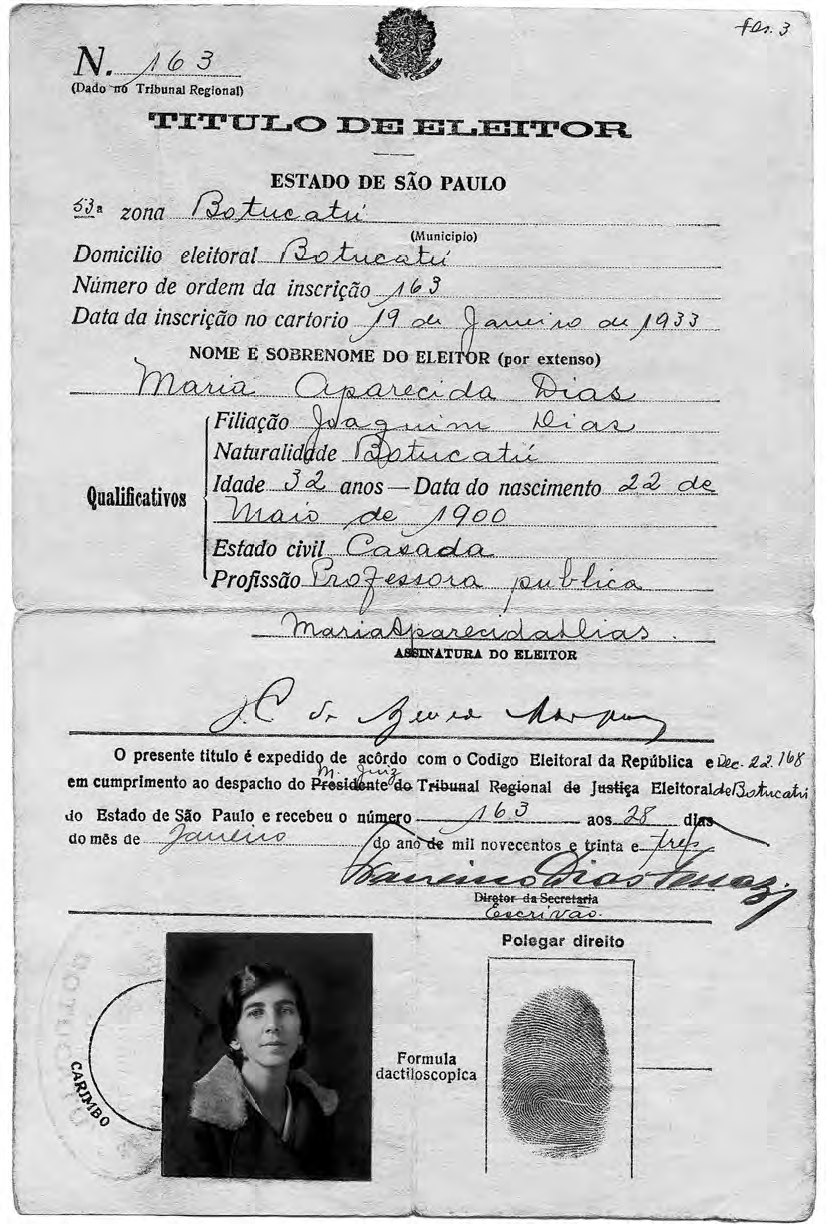 fls. 3
N. 163
(Dado no Tribunal Regional)
TITULO DE ELEITOR
ESTADO DE SÃO PAULO
53ª zona Botucatú
(Municipio)
Domicilio eleitoral Botucatú
Número de ordem da inscrição 163
Data da inscrição no cartorio 19 de Janeiro de 1933
NOME E SOBRENOME DO ELEITOR (por extenso)
Maria Aparecida Dias
Qualificativos
Filiação Joaquim Dias
Naturalidade Botucatú
Idade 32 anos — Data do nascimento 22 de
Maio de 1900
Estado civil Casada
Profissão Professora publica
Maria Aparecida Dias.
ASSINATURA DO ELEITOR
O presente titulo é expedido de acôrdo com o Codigo Eleitoral da República e Dec. 22.168
M. Juiz
em cumprimento ao despacho do Presidente do Tribunal Regional de Justiça Eleitoral de Botucatú
do Estado de São Paulo e recebeu o número 163 aos 28 dias
do mês de Janeiro do ano de mil novecentos e trinta e tres
Francisco Dias
Diretor da Secretaria
Escrivão.
Polegar direito
CARIMBO
Formula
dactiloscopica